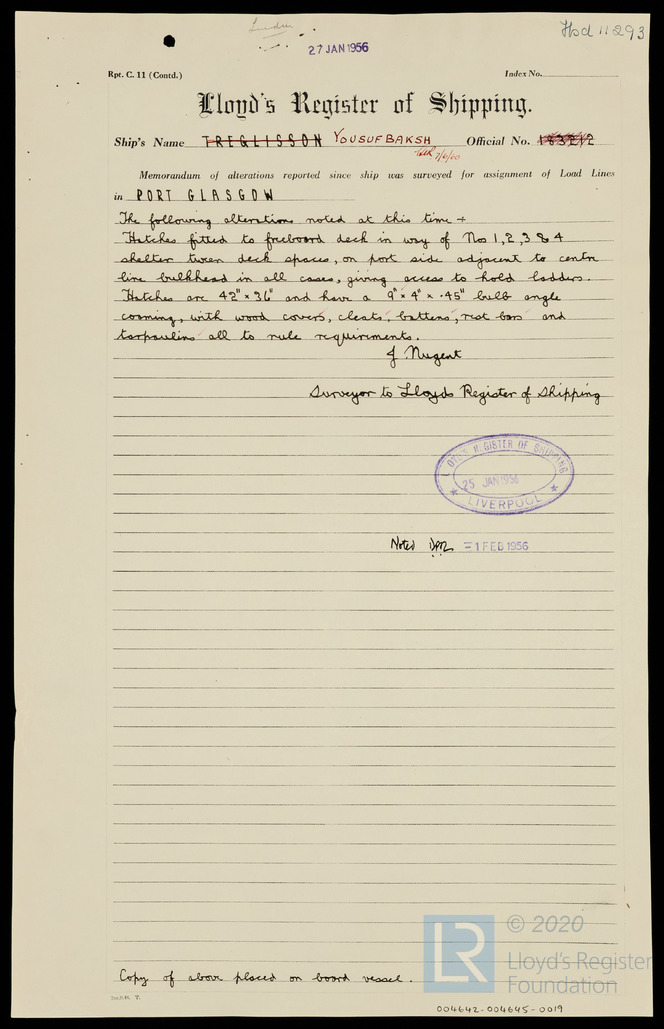 London
27 JAN 1956
Hbd 11293
Rpt. C. 11 (Contd.)
Index No.
Lloyd's Register of Shipping.
Ship's Name TREGLISSON YOUSUFBAKSH Official No.
7/6/60
Memorandum of alterations reported since ship was surveyed for assignment of Load Lines
in PORT GLASGOW
The following alterations noted at this time :-
Hatches fitted to freeboard deck in way of Nos 1, 2, 3 & 4
shelter tween deck spaces, on port side adjacent to centre
line bulkhead in all cases, giving access to hold ladders.
Hatches are 42" × 36" and have a 9" × 4" × .45" bulb angle
coaming, with wood covers, cleats, battens, rest bars and
tarpaulins all to rule requirements.
J. Nugent
Surveyor to Lloyds Register of Shipping
LLOYD'S REGISTER OF SHIPPING
25 JAN 1956
LIVERPOOL
Noted -1 FEB 1956
Copy of above placed on board vessel.
LR
© 2020
Lloyd's Register
Foundation
004642-004645-0019